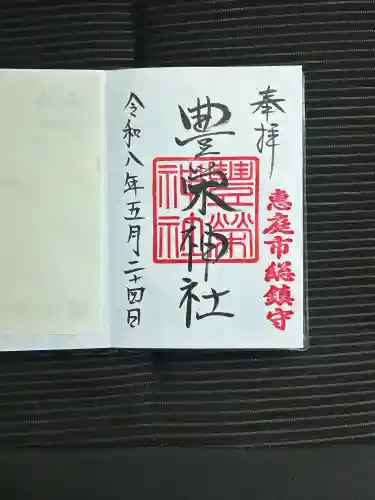 奉拝
恵庭市総鎮守
豊栄神社
豊榮神社
令和八年五月二十四日